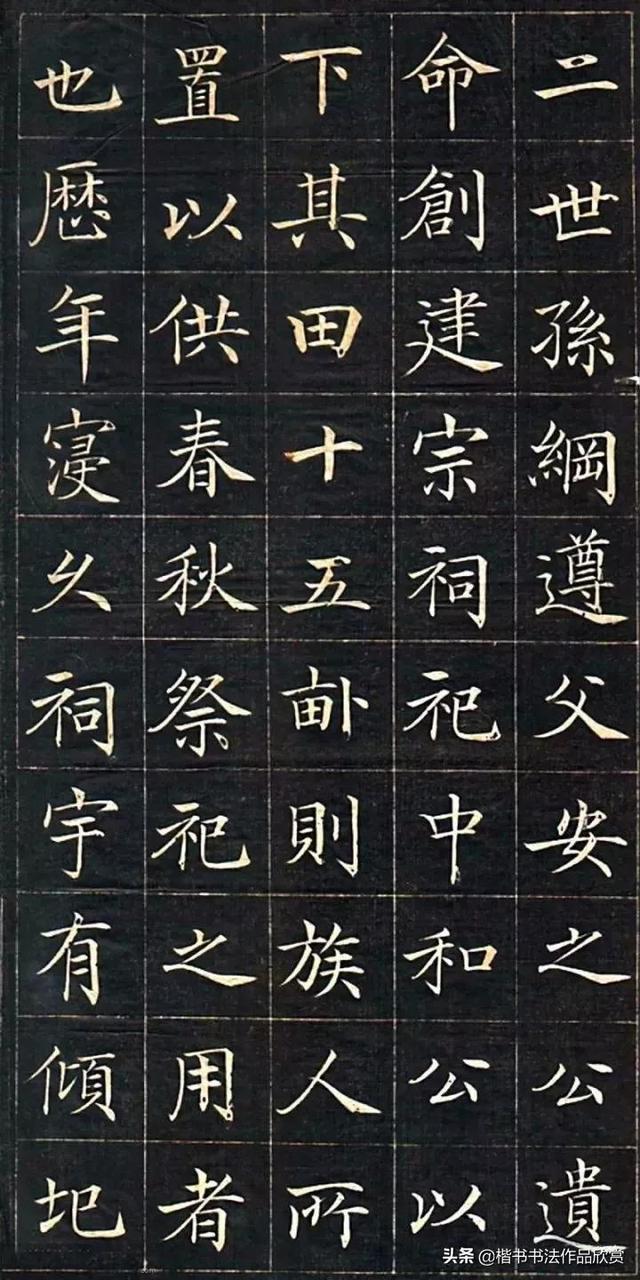 二世孫綱遵父安之公遺
命創建宗祠祀中和公以
下其田十五畝則族人所
置以供春秋祭祀之用者
也歴年寖久祠宇有傾圯
头条 @楷书书法作品欣赏